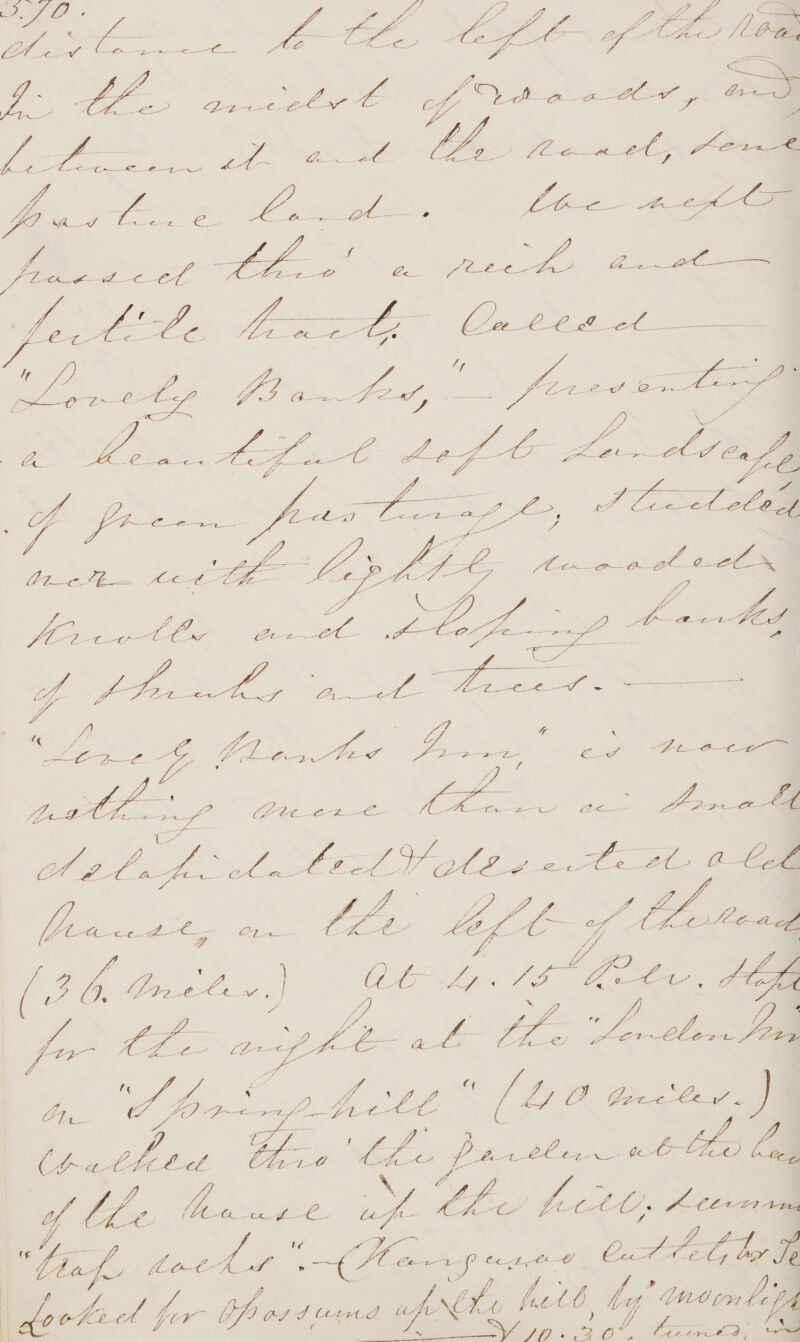 570.
distance to the left of the road
In the midst of woods, and
between it and the road, some
pasture land. We next
passed thro' a rich and
fertile tract, Called
"Lovely Banks," — presenting
a beautiful soft landscape
of green pasturage, studded
over with lightly wooded
Knolls and sloping banks
of shrubs and trees. —
"Lovely Banks Inn," is now
nothing more than a small
delapidated & deserted old
house, on the left of the road
(36. Miles.) At 4.15 P.M. stopt
for the night at the "London Inn
on "Spring-hill" (40 miles.)
Walked thro' the garden at the bac
of the house up the hill;
"trap rocks". — (Kangaroo Cutlets for Te
Looked for Opossums up the hill, by moonligh
10.30. turned in